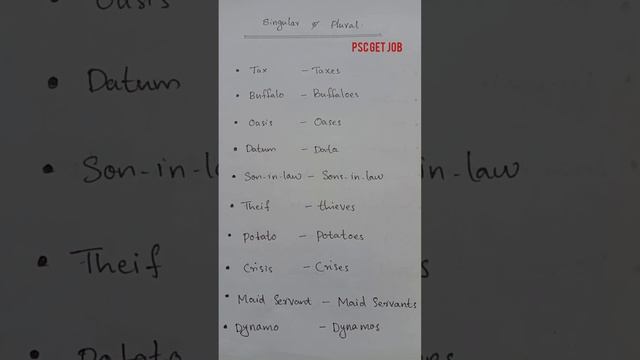 Singular & Plural
PSC GET JOB
• Tax – Taxes
• Buffalo – Buffaloes
• Oasis – Oases
• Datum – Data
• Son-in-law – Sons-in-law
• Theif – thieves
• Potato – Potatoes
• Crisis – Crises
• Maid Servant – Maid Servants
• Dynamo – Dynamos
Oasis
• Datum
• Son-in-l
n-law
• Theif